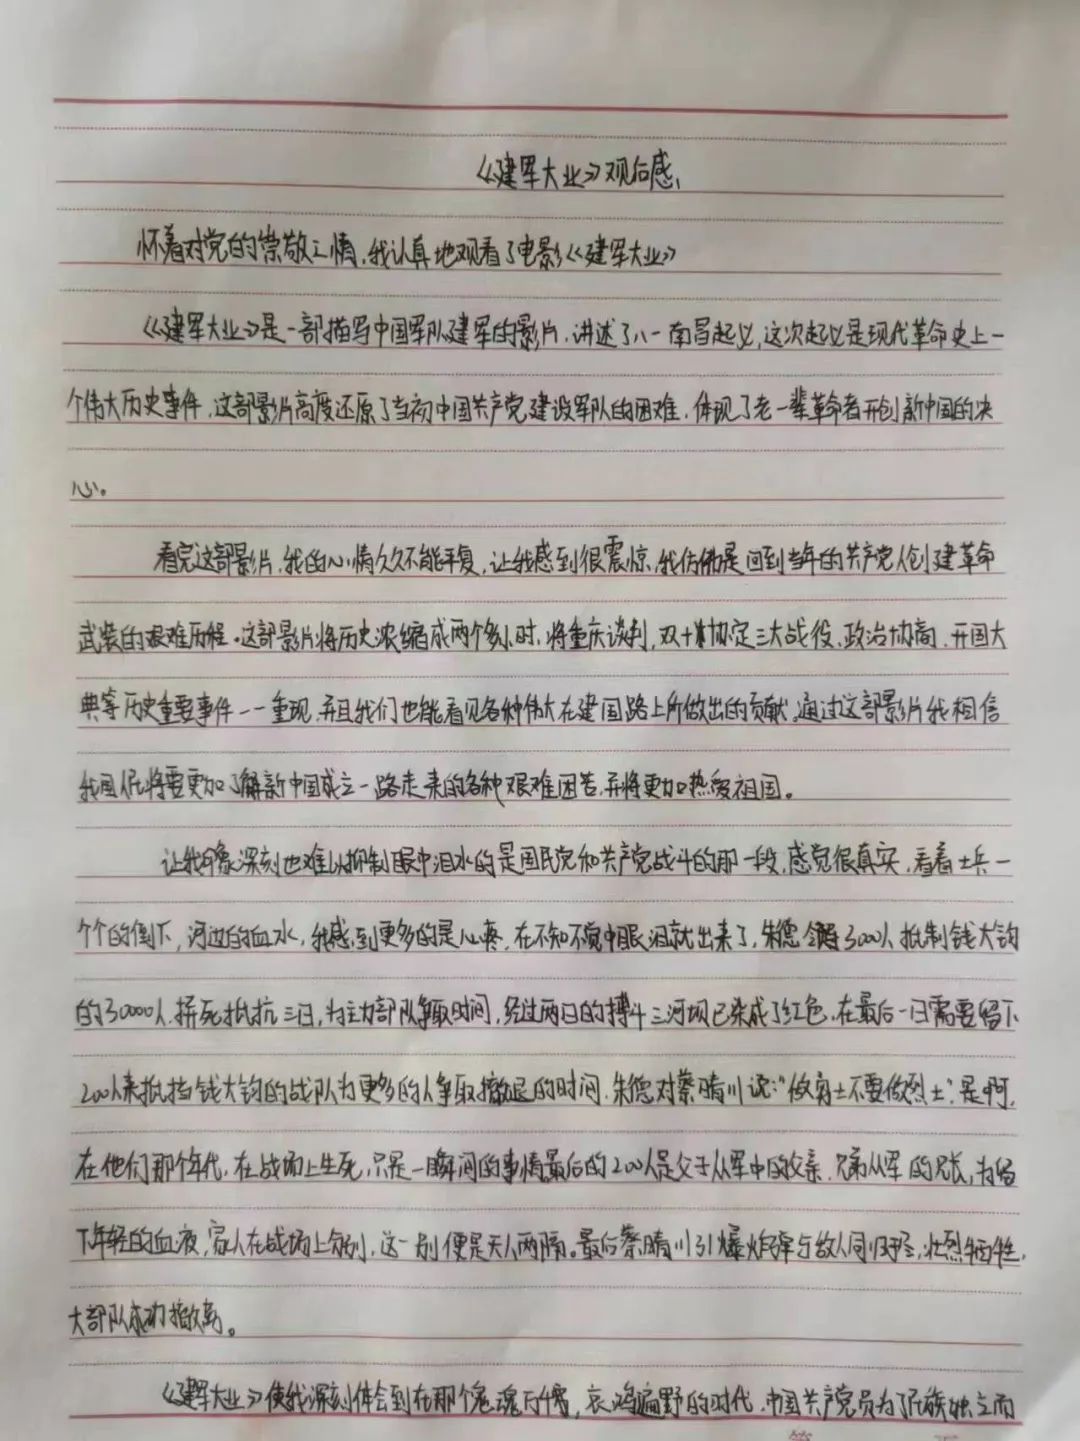 《建军大业》观后感
怀着对党的崇敬之情,我认真地观看了电影《建军大业》
《建军大业》是一部描写中国军队建军的影片,讲述了八一南昌起义,这次起义是现代革命史上一
个伟大历史事件,这部影片高度还原了当初中国共产党建设军队的困难,体现了老一辈革命者开创新中国的决
心。
看完这部影片,我的心情久久不能平复,让我感到很震惊,我仿佛是回到当年的共产党人创建革命
武装的艰难历程。这部影片将历史浓缩成两个多小时,将重庆谈判,双十协定三大战役、政治协商、开国大
典等历史重要事件一一重现,并且我们也能看见各种伟大在建国路上所做出的贡献。通过这部影片我相信
我国人民将要更加了解新中国成立一路走来的各种艰难困苦,并将更加热爱祖国。
让我印象深刻也难以抑制眼中泪水的是国民党和共产党战斗的那一段,感觉很真实,看着士兵一
个个的倒下,河边的血水,我感到更多的是心疼,在不知不觉中眼泪就出来了,朱德领3000人抵制钱大钧
的30000人,拼死抵抗三日,为主力部队争取时间,经过两日的搏斗三河坝已染成了红色,在最后一日需要留下
200人来抵挡钱大钧的战队为更多的人争取撤退的时间,朱德对蔡晴川说:"做勇士不要做烈士",是啊,
在他们那个年代,在战场上生死,只是一瞬间的事情最后的200人是父子从军中的父亲,兄弟从军的兄长,为留
下年轻的血液,家人在战场上分别,这一别便是天人两隔。最后蔡晴川引爆炸弹与敌人同归于尽,壮烈牺牲,
大部队成功撤离。
《建军大业》使我深刻体会到在那个鬼魂,哀鸿遍野的时代,中国共产党员为了民族独立而